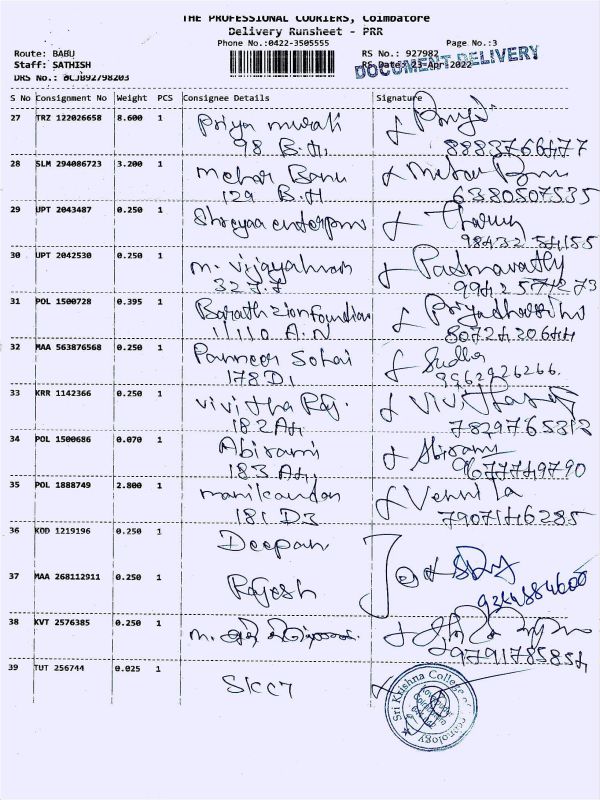 THE PROFESSIONAL COURIERS, Coimbatore
Delivery Runsheet - PRR
Phone No.:0422-3505555
Page No.:3
Route: BABU
RS No.: 927982
Staff: SATHISH
RS Date: 23-Apr-2022
DOCUMENT DELIVERY
DRS No.: BCJB92798203
S No Consignment No Weight PCS Consignee Details Signature
27 TRZ 122026658 8.600 1 Priya murali
98 B.H. 8883766477
28 SLM 294086723 3.200 1 Mehar Banu
129 B.H 6380507535
29 UPT 2043487 0.250 1 Shreyaa enterprises Tharun
98432 54155
30 UPT 2042530 0.250 1 m. vijayalaxmi Padmavathy
327.F 9942571273
31 POL 1500728 0.395 1 Barath zion foundation Priyadharshini
11110 A.N 8072430644
32 MAA 563876568 0.250 1 Sudha
178 D1 9962926266
33 KRR 1142366 0.250 1 vivitha Raj. Vivitha
182 A4 7829765312
34 POL 1500686 0.070 1 Abirami Abirami
183 A4 9677749790
35 POL 1888749 2.800 1 manikandan Vennila
181 D3 7907146285
36 KOD 1219196 0.250 1 Deepan
37 MAA 268112911 0.250 1 Rajesh
38 KVT 2576385 0.250 1 m.
9791785854
39 TUT 256744 0.025 1 SKCT
Sri Krishna College of Technology
Kovaipudur
Coimbatore